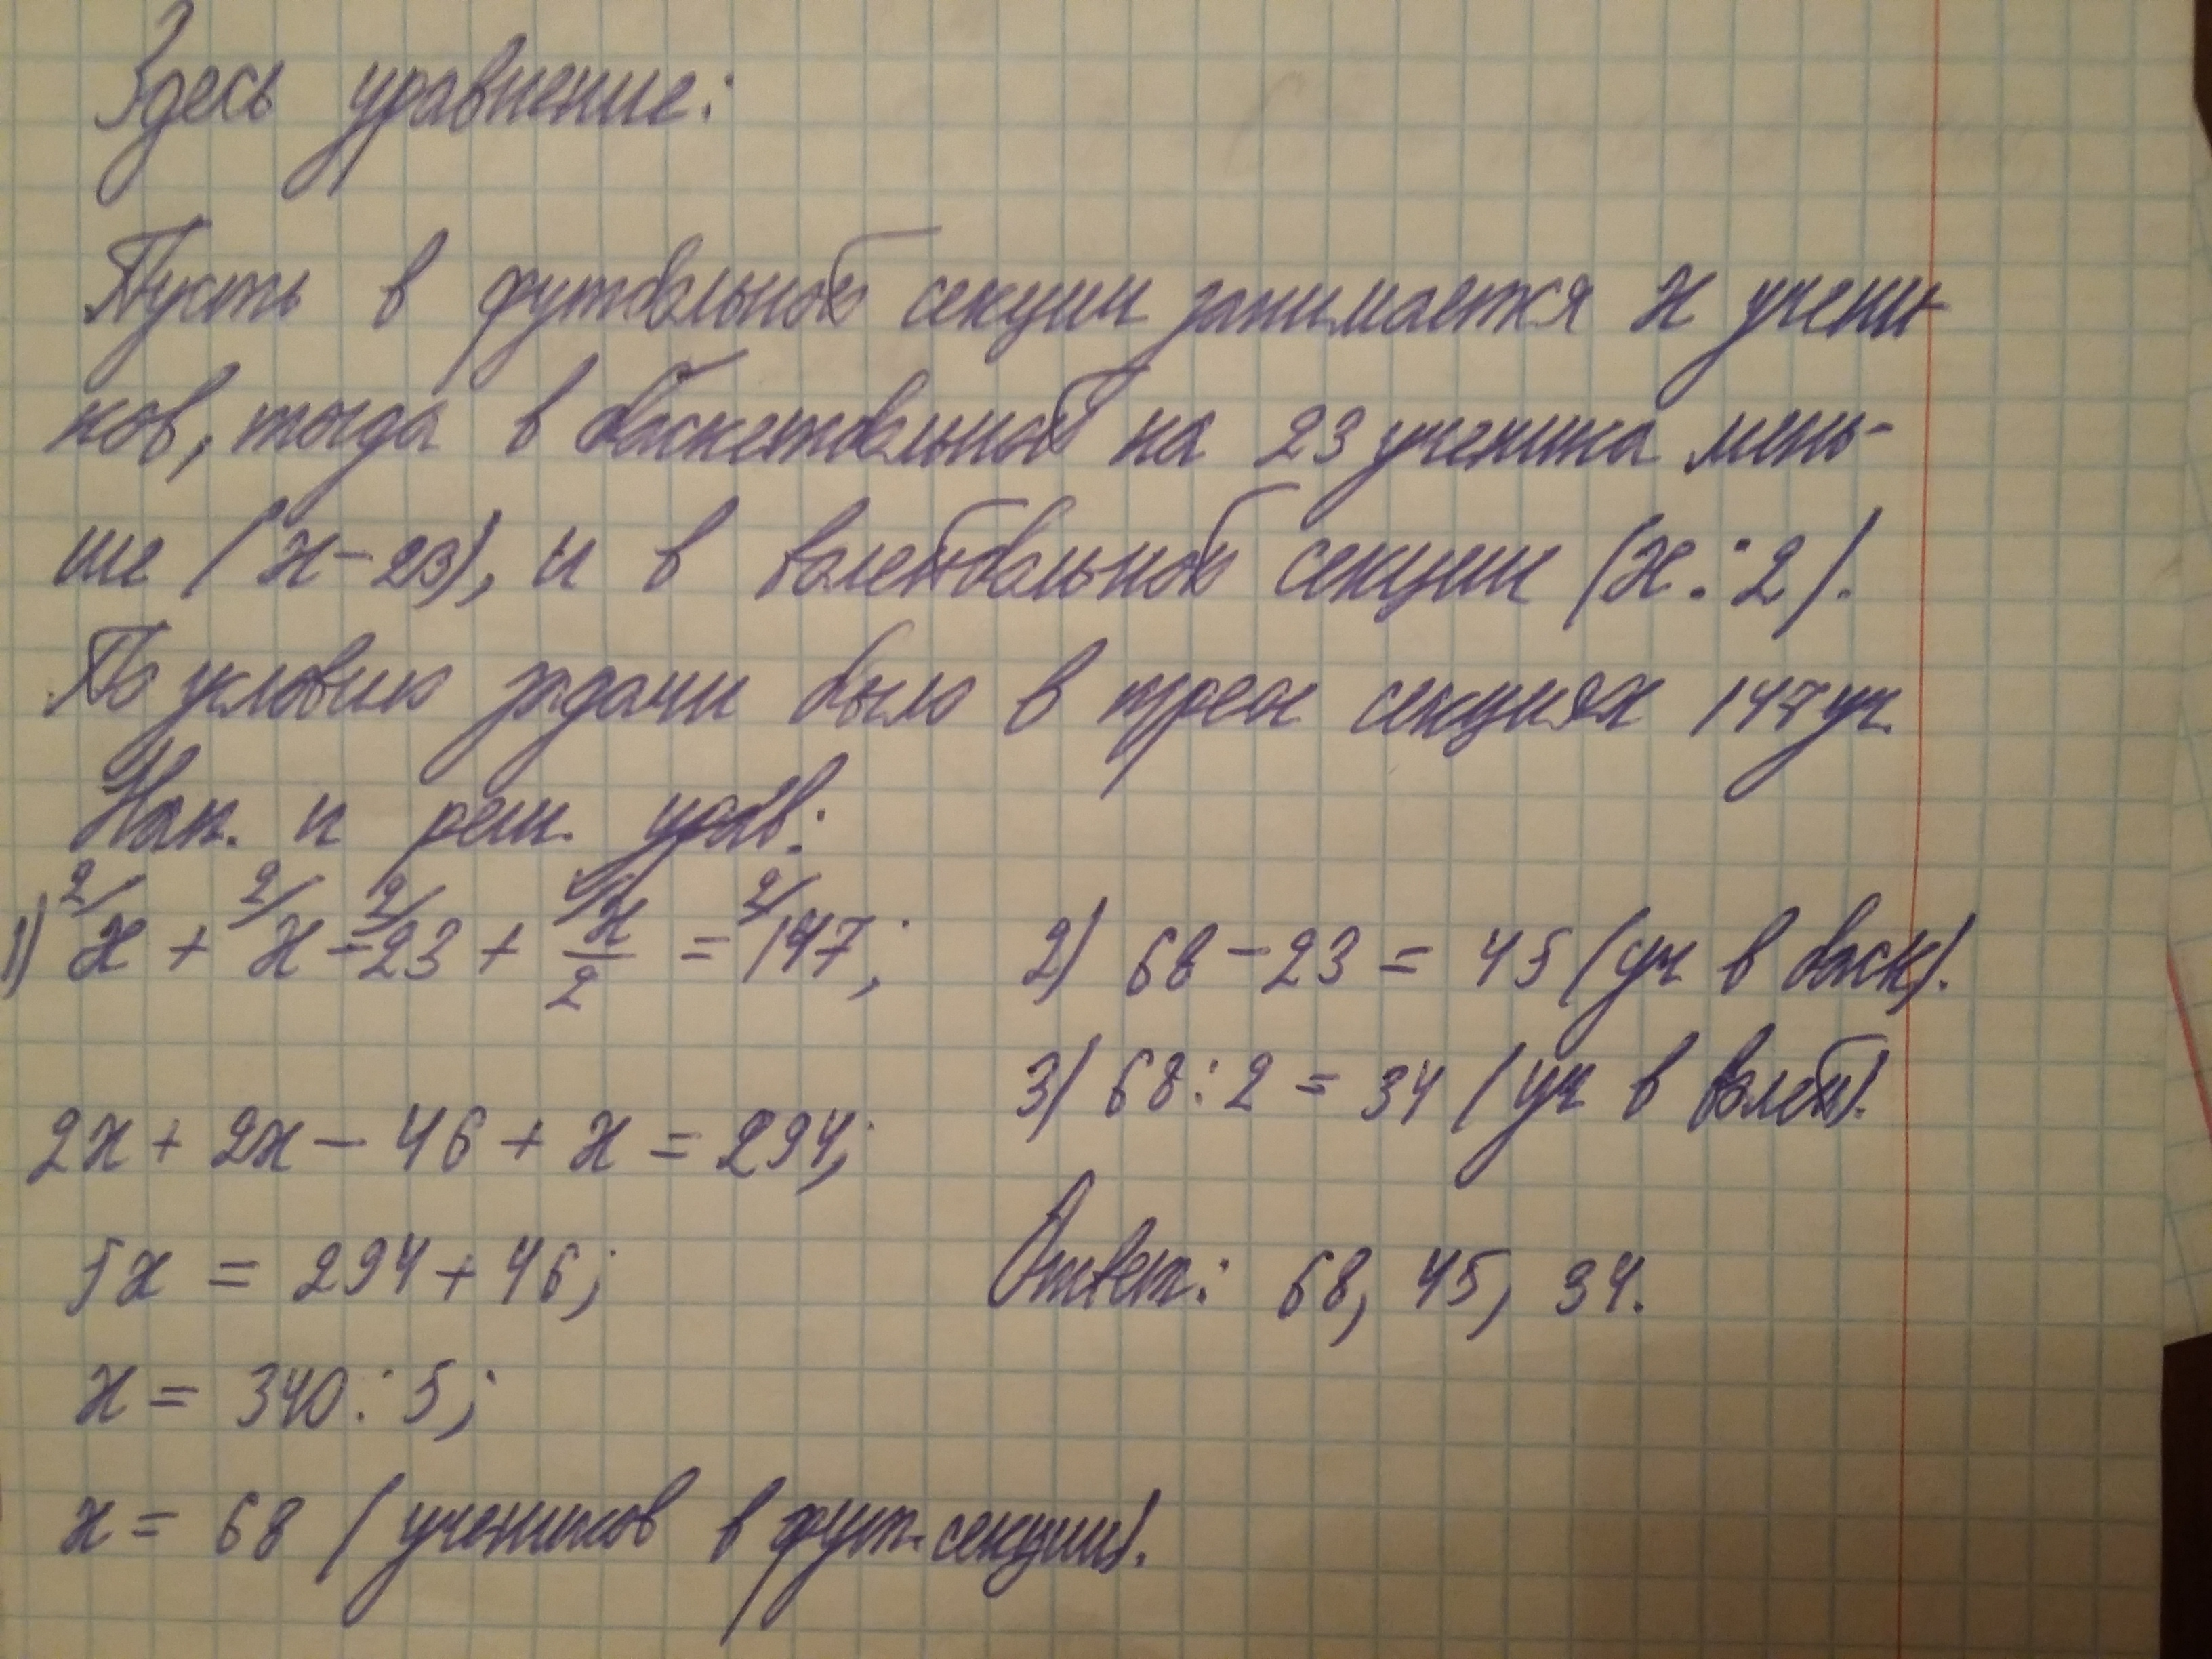 Здесь уравнение:
Пусть в футбольной секции занимается x учени-
ков, тогда в баскетбольной на 23 ученика мень-
ше (x - 23), и в волейбольной секции (x : 2).
По условию задачи было в трех секциях 147 уч.
Нап. и реш. урав:
1) 2/ x + 2/ x - 2/ 23 + 1/ x/2 = 2/ 147;
2x + 2x - 46 + x = 294;
5x = 294 + 46;
x = 340 : 5;
x = 68 (учеников в фут. секции).
2) 68 - 23 = 45 (уч в баск).
3) 68 : 2 = 34 (уч в волей).
Ответ: 68, 45, 34.